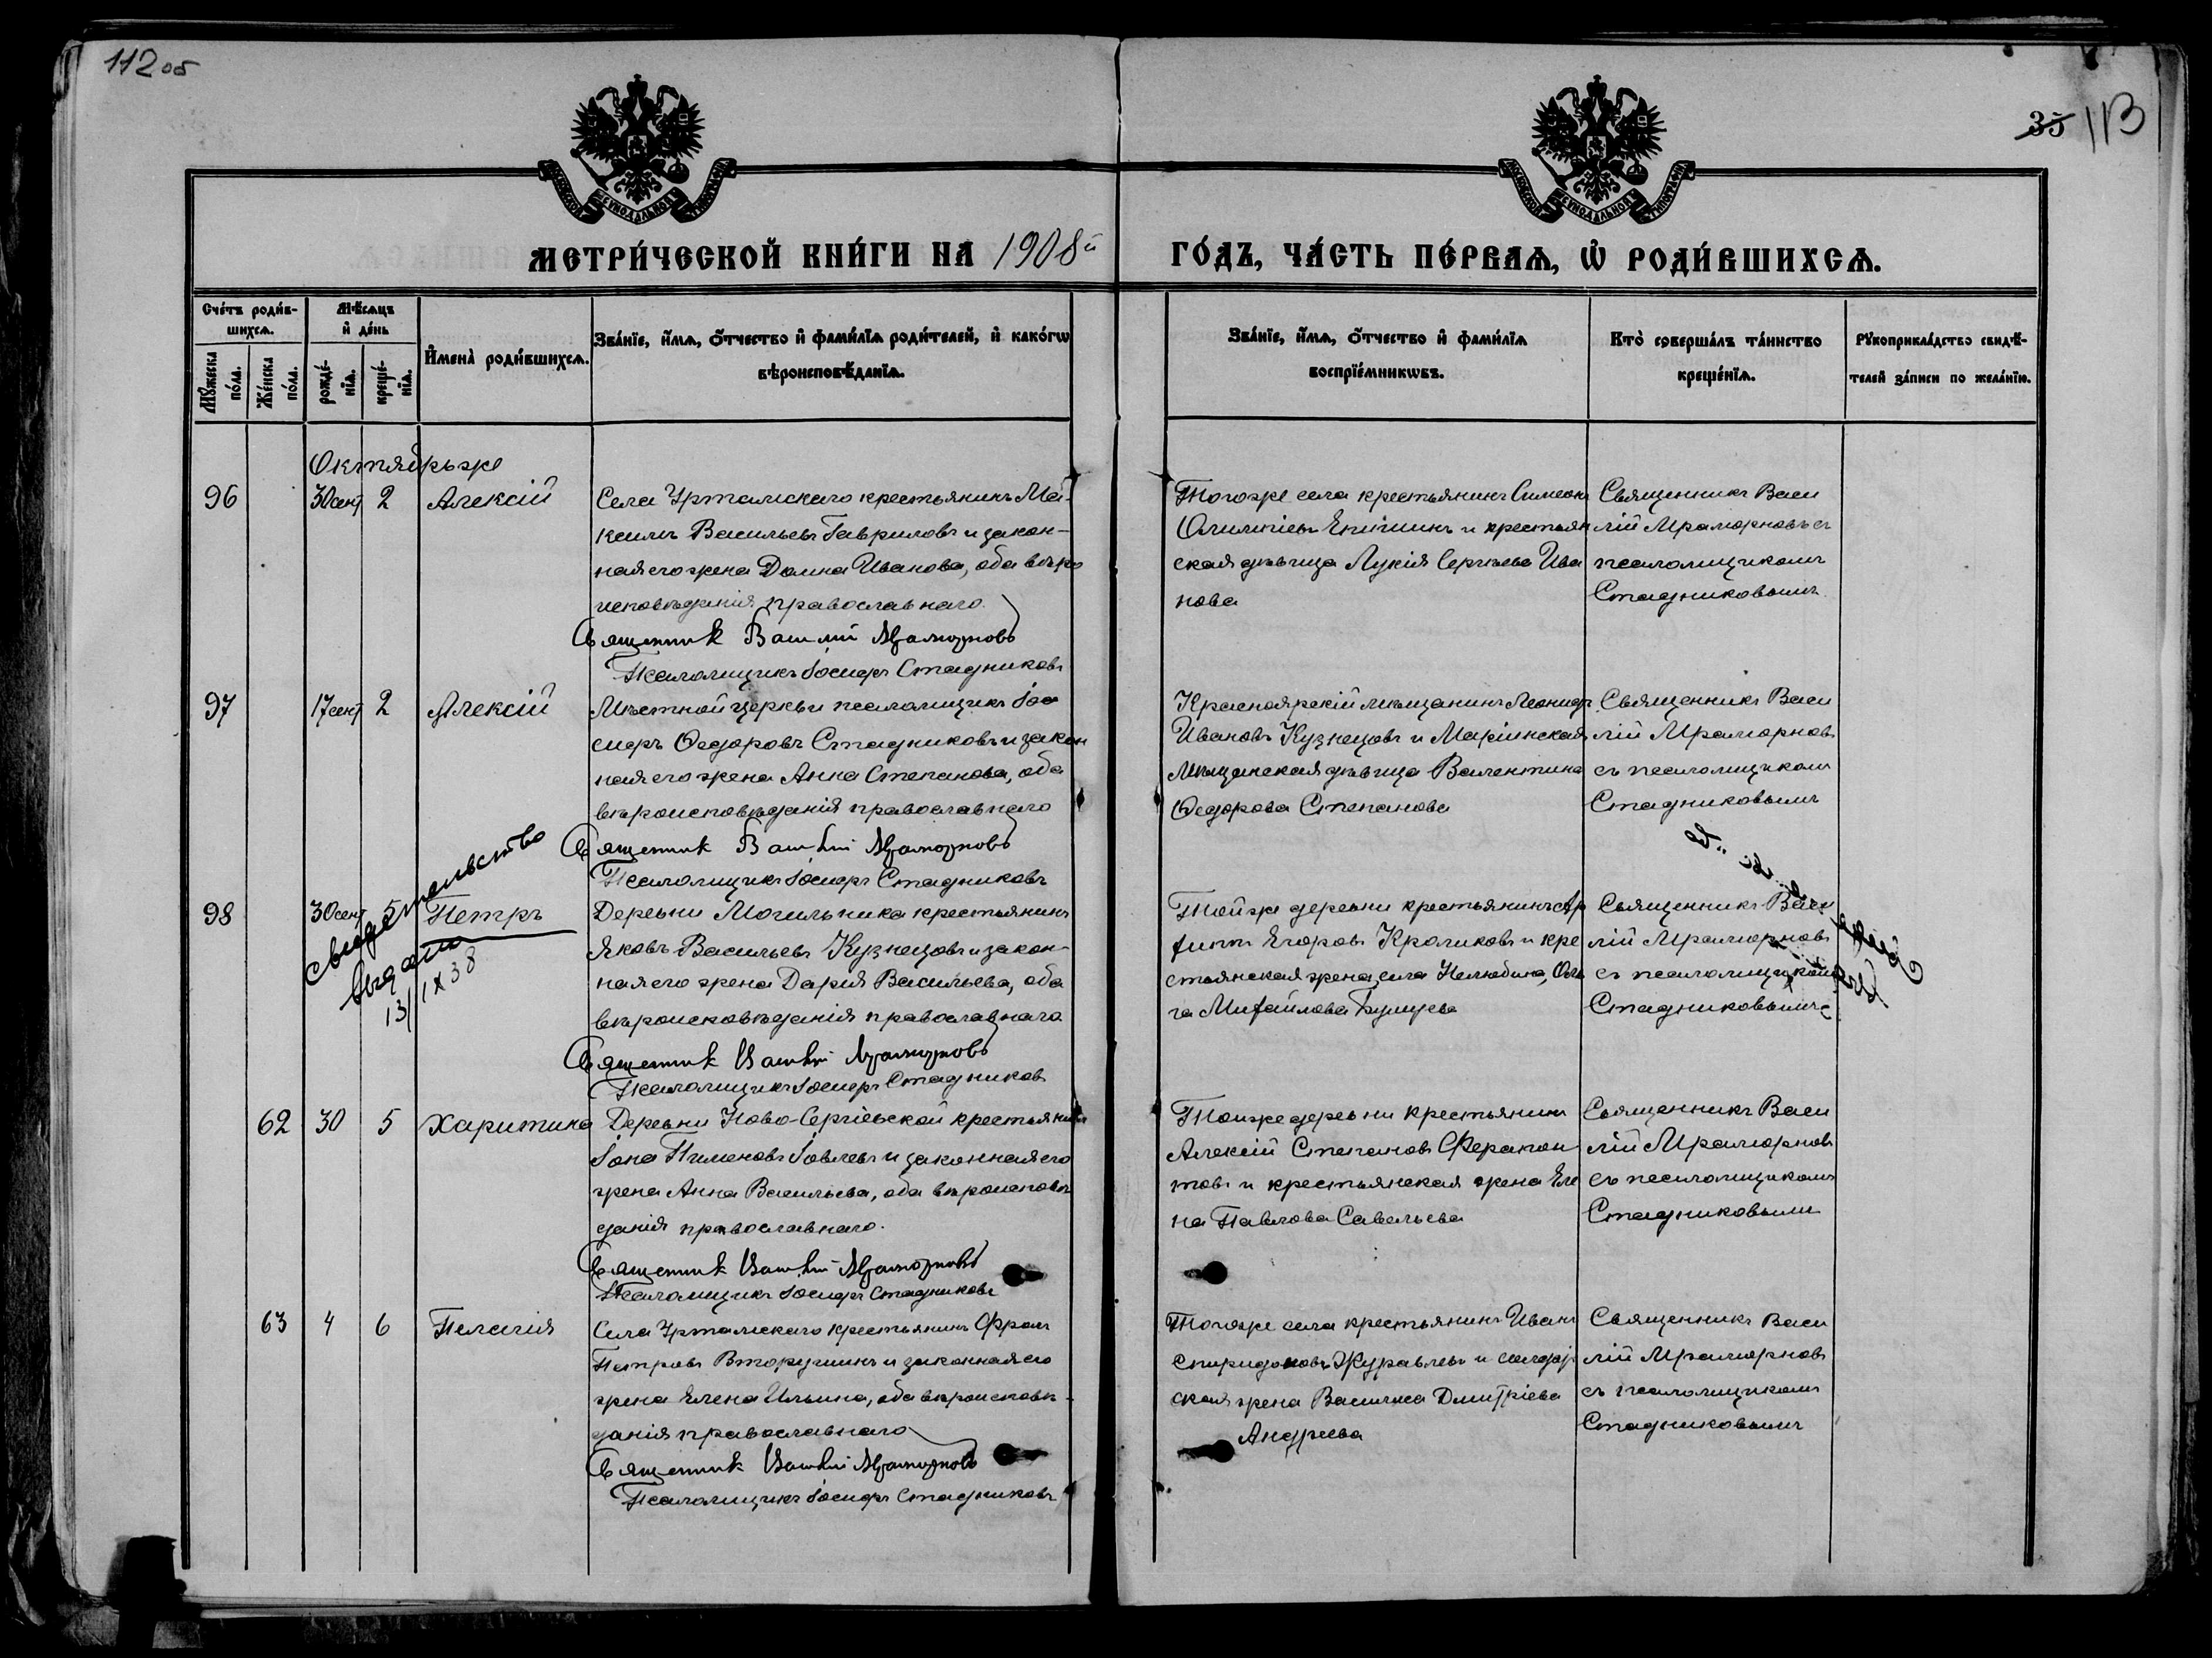 112 об
35 113
МОСКОВСКОЙ СѴНОДАЛЬНОЙ ТИПОГРАФІИ
МОСКОВСКОЙ СѴНОДАЛЬНОЙ ТИПОГРАФІИ
МЕТРИ́ЧЕСКОЙ КНИ́ГИ НА 1908й
ГО́ДЪ, ЧА́СТЬ ПЕ́РВАѦ, Ѡ҆ РОДИ́ВШИХСѦ.
Сче́тъ роди́в-
шихсѧ.
Мꙋ́жеска по́ла.
Же́нска по́ла.
Мѣ́сѧцъ
и҆ де́нь
рожде́-
нїѧ.
креще́-
нїѧ.
И҆мена̀ роди́вшихсѧ.
Зва́нїе, и҆́мѧ, ѻ҆́тчество и҆ фами́лїѧ роди́телей, и҆ како́гѡ
вѣроисповѣ́данїѧ.
Зва́нїе, и҆́мѧ, ѻ҆́тчество и҆ фами́лїѧ
воспрїе́мникѡвъ.
Кто̀ соверша́лъ та́инство
креще́нїѧ.
Рꙋкоприкла́дство свидѣ́-
телей за́писи по жела́нїю.
Октябрьже
96 30 сент 2 Алексій
Села Уртамскаго крестьянинъ Мак-
симъ Васильевъ Гавриловъ и закон-
ная его жена Домна Иванова, оба вѣро
исповѣданія православнаго.
Священник Василій Мраморновъ
Псаломщикъ Іосифъ Стадниковъ
Тогоже села крестьянинъ Симеонъ
Епишинъ и крестьян
ская дѣвица Лукія Сергѣева Ива
нова
Священникъ Васи
лій Мраморновъ съ
псаломщикомъ
Стадниковымъ
97 17 сент 2 Алексій
Мѣстной церкви псаломщикъ Іо
сифъ Ѳедоровъ Стадниковъ и закон
ная его жена Анна Степанова, оба
вѣроисповѣданія православнаго
Священник Василій Мраморновъ
Псаломщикъ Іосифъ Стадниковъ
Красноярскій мѣщанинъ Леонидъ
Ивановъ Кузнецовъ и Маріинская
мѣщанская дѣвица Валентина
Ѳедорова Степанова
Священникъ Васи
лій Мраморновъ
съ псаломщикомъ
Стадниковымъ
98 30 сент 5 Петръ
свидетельство
выдано
13/IX 38
Деревни Могильника крестьянинъ
Яковъ Васильевъ Кузнецовъ и закон-
ная его жена Дарія Васильева, оба
вѣроисповѣданія православнаго
Священник Василій Мраморновъ
Псаломщикъ Іосифъ Стадниковъ
Тойже деревни крестьянинъ Ар
хипъ Егоровъ Кроликовъ и кре
стьянская жена села Нелюбина, Оль
га Михайлова
Священникъ Васи
лій Мраморновъ
съ псаломщикомъ
Стадниковымъ
62 30 5 Харитина
Деревни Ново-Сергіевской крестьянинъ
Іона Пименовъ Іовлевъ и законная его
жена Анна Васильева, оба вѣроисповѣ
данія православнаго.
Священник Василій Мраморновъ
Псаломщикъ Іосифъ Стадниковъ
Тойже деревни крестьянинъ
Алексій Степановъ Ферапон
товъ и крестьянская жена Еле
на Павлова Савельева
Священникъ Васи
лій Мраморновъ
съ псаломщикомъ
Стадниковымъ
63 4 6 Пелагія
Села Уртамскаго крестьянинъ Фролъ
Петровъ Вторушинъ и законная его
жена Елена Ильина, оба вѣроисповѣ-
данія православнаго
Священник Василій Мраморновъ
Псаломщикъ Іосифъ Стадниковъ
Тогоже села крестьянинъ Иванъ
Спиридоновъ Журавлевъ и солдат
ская жена Василиса Дмитріева
Андреева
Священникъ Васи
лій Мраморновъ
съ псаломщикомъ
Стадниковымъ